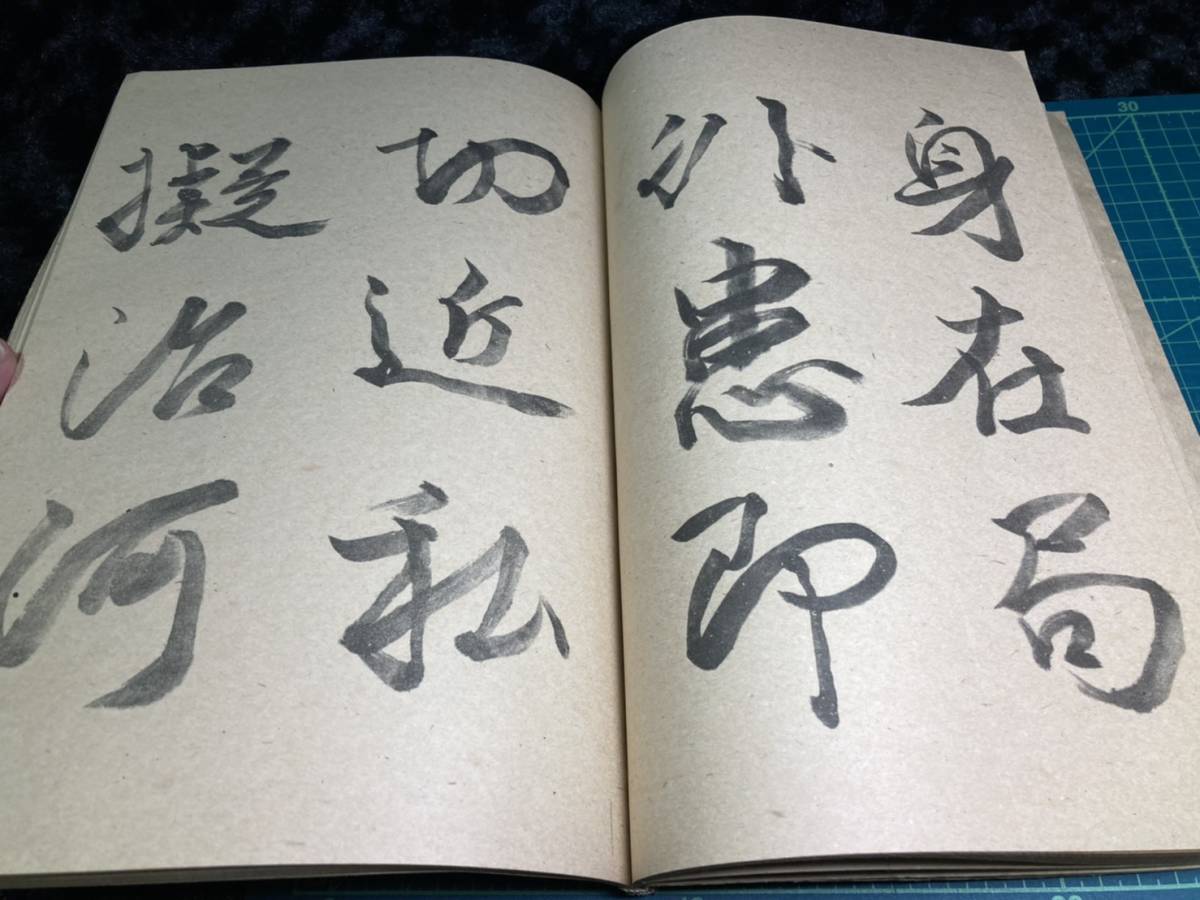 身在局
外患即
切近私
擬治河
30